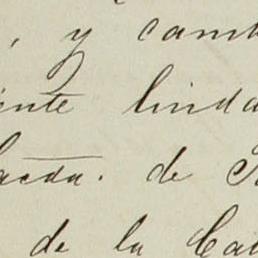 , y cam
ente linda
acda. de
de la Ca